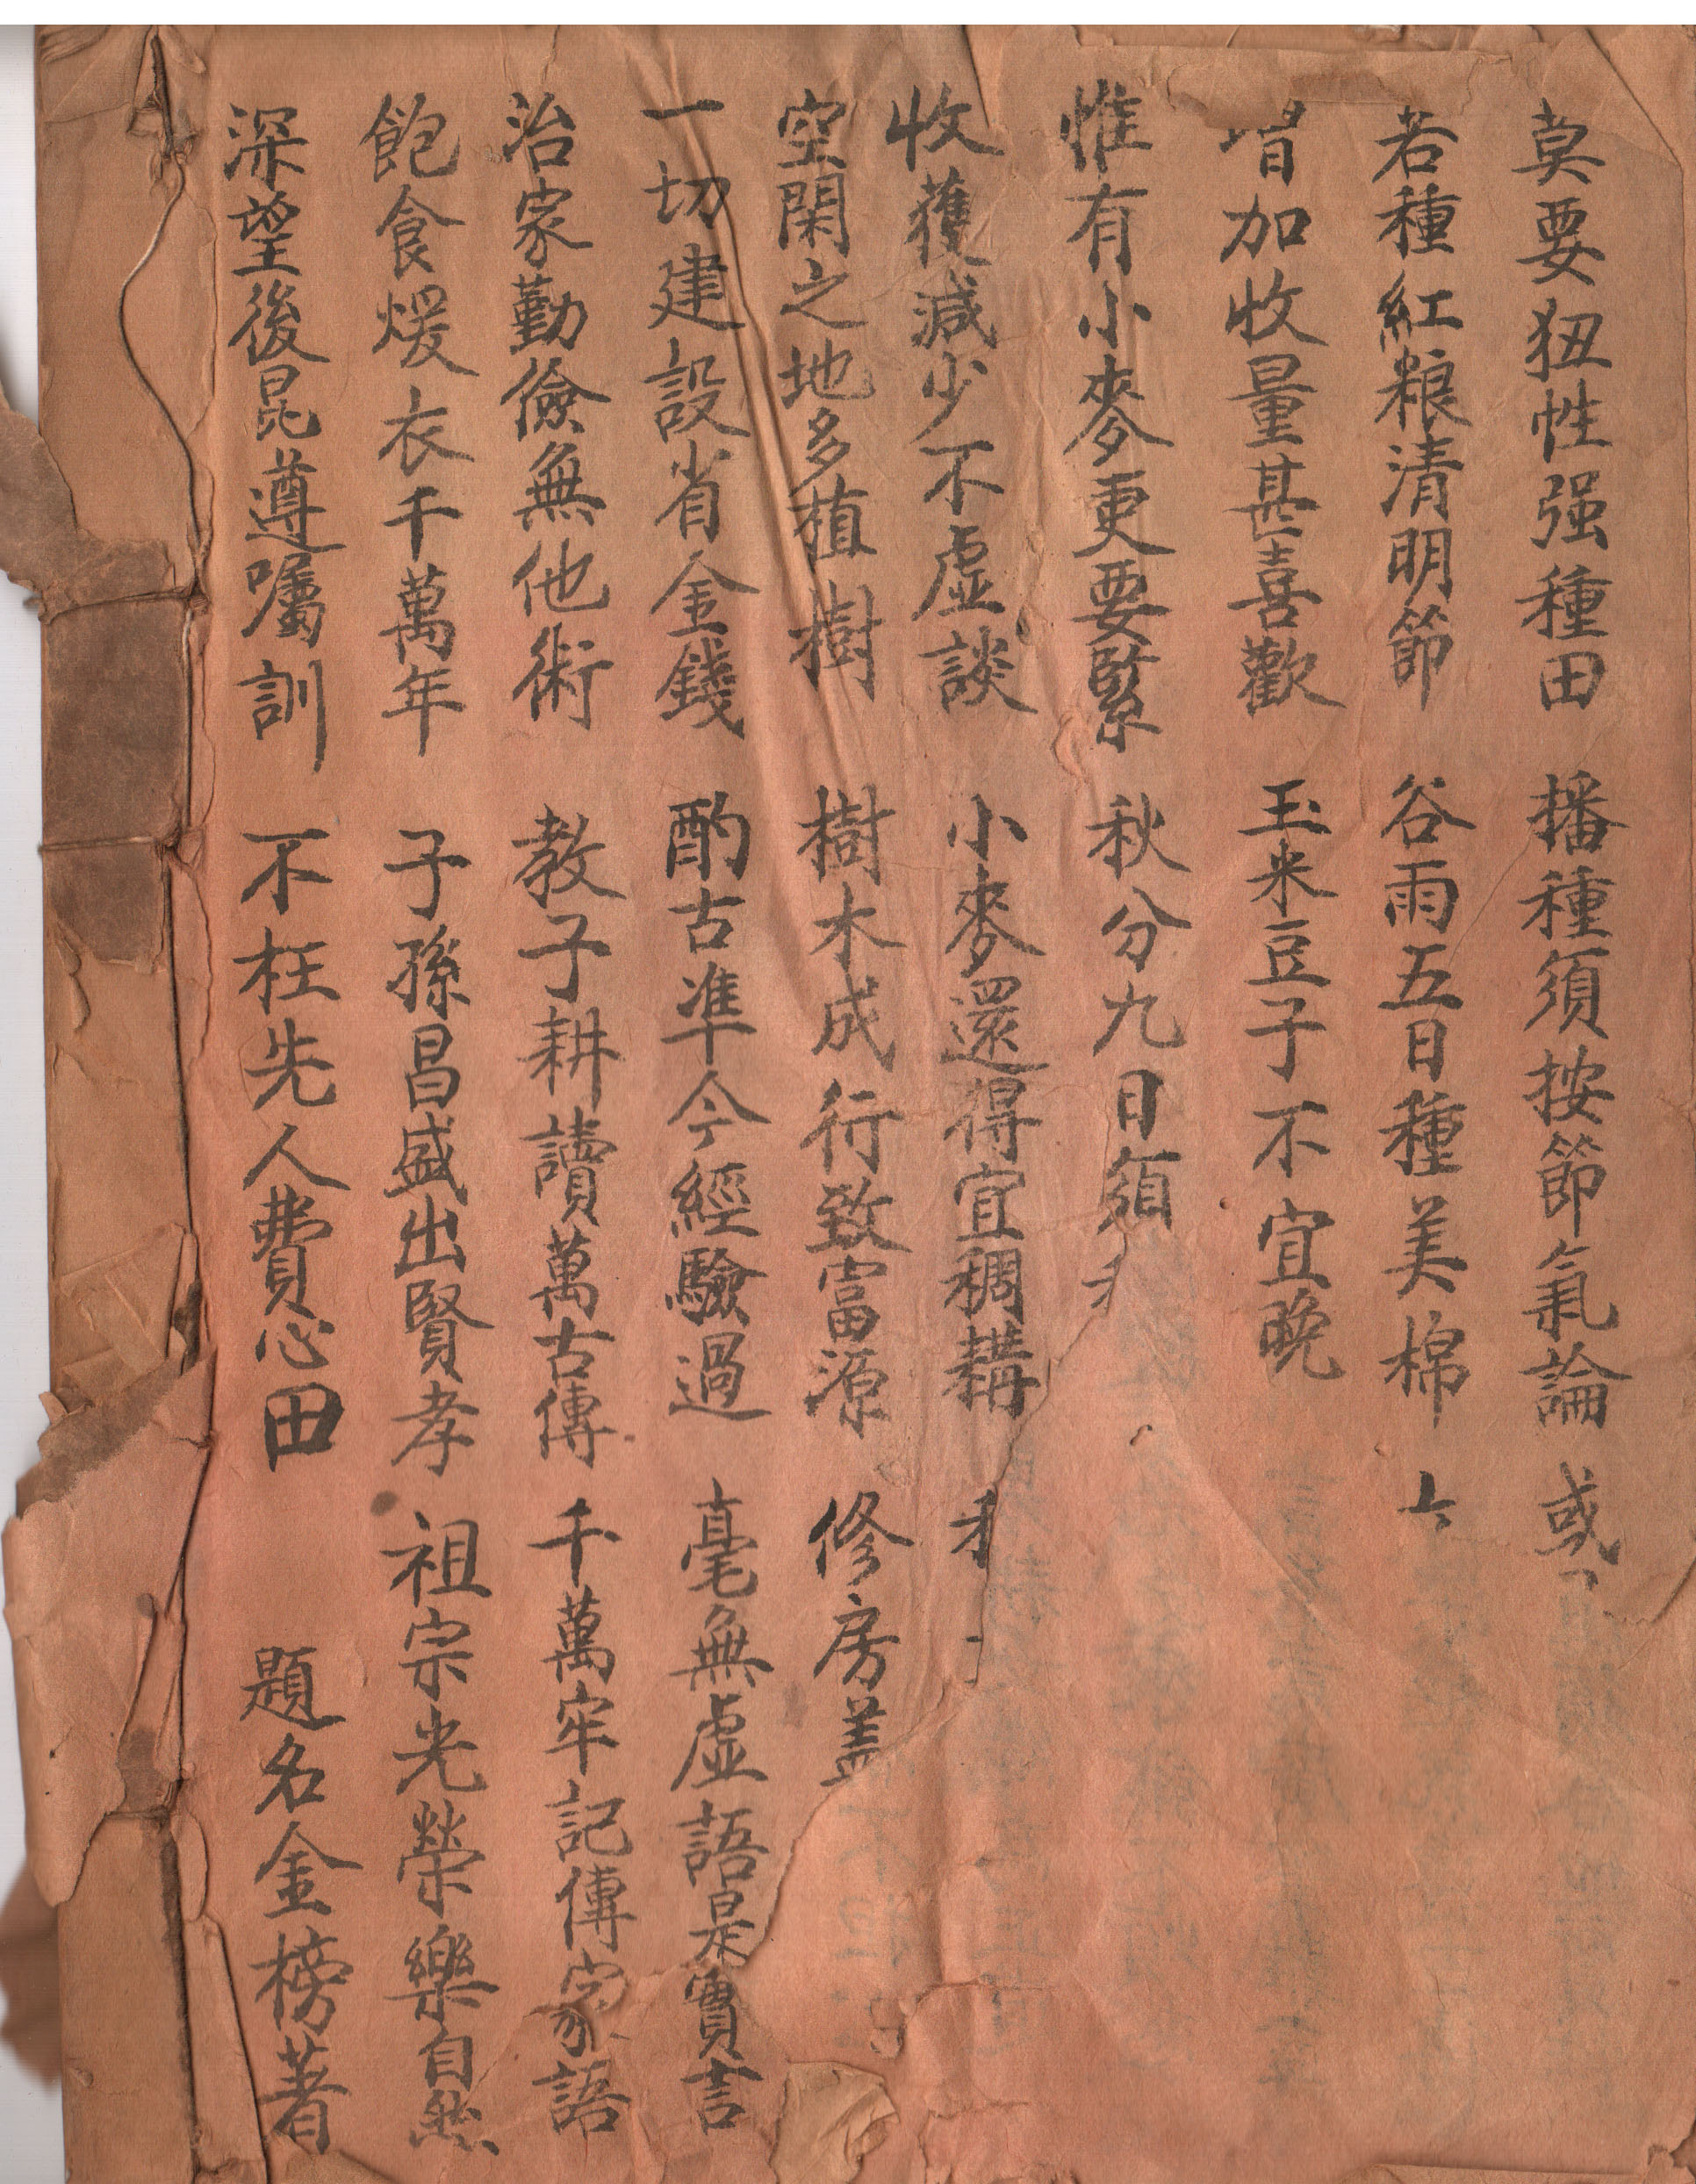 莫要狃性强種田 播種須按節氣論 或
若種紅粮清明節 谷雨五日種美棉
增加收量甚喜歡 玉米豆子不宜晚
惟有小麥更要緊 秋分九日須
收獲减少不虚談 小麥還得宜稠耩
空閑之地多植樹 樹木成行致富源 修房盖
一切建設省金錢 酌古凖今經驗過 毫無虚語是實言
治家勤儉無他術 教子耕讀萬古傳 千萬牢記傳家語
飽食煖衣千萬年 子孫昌盛出賢孝 祖宗光榮樂自然
深望後昆遵囑訓 不枉先人費心田 題名金榜著